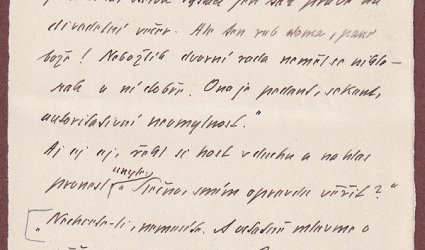 divadelní večer. Ale ten rub doma, pane
bože! Nebožtík dvorní rada neměl se nikte-
rak u ní dobře. Ona je pedant, sekant,
autoritativní neomylnost."
Aj aj aj, řekl si host v duchu a nahlas
pronesl unyle: „Slečno, smím opravdu věřit?"
„Nechcete-li, nemusíte. A ostatně mluvme o